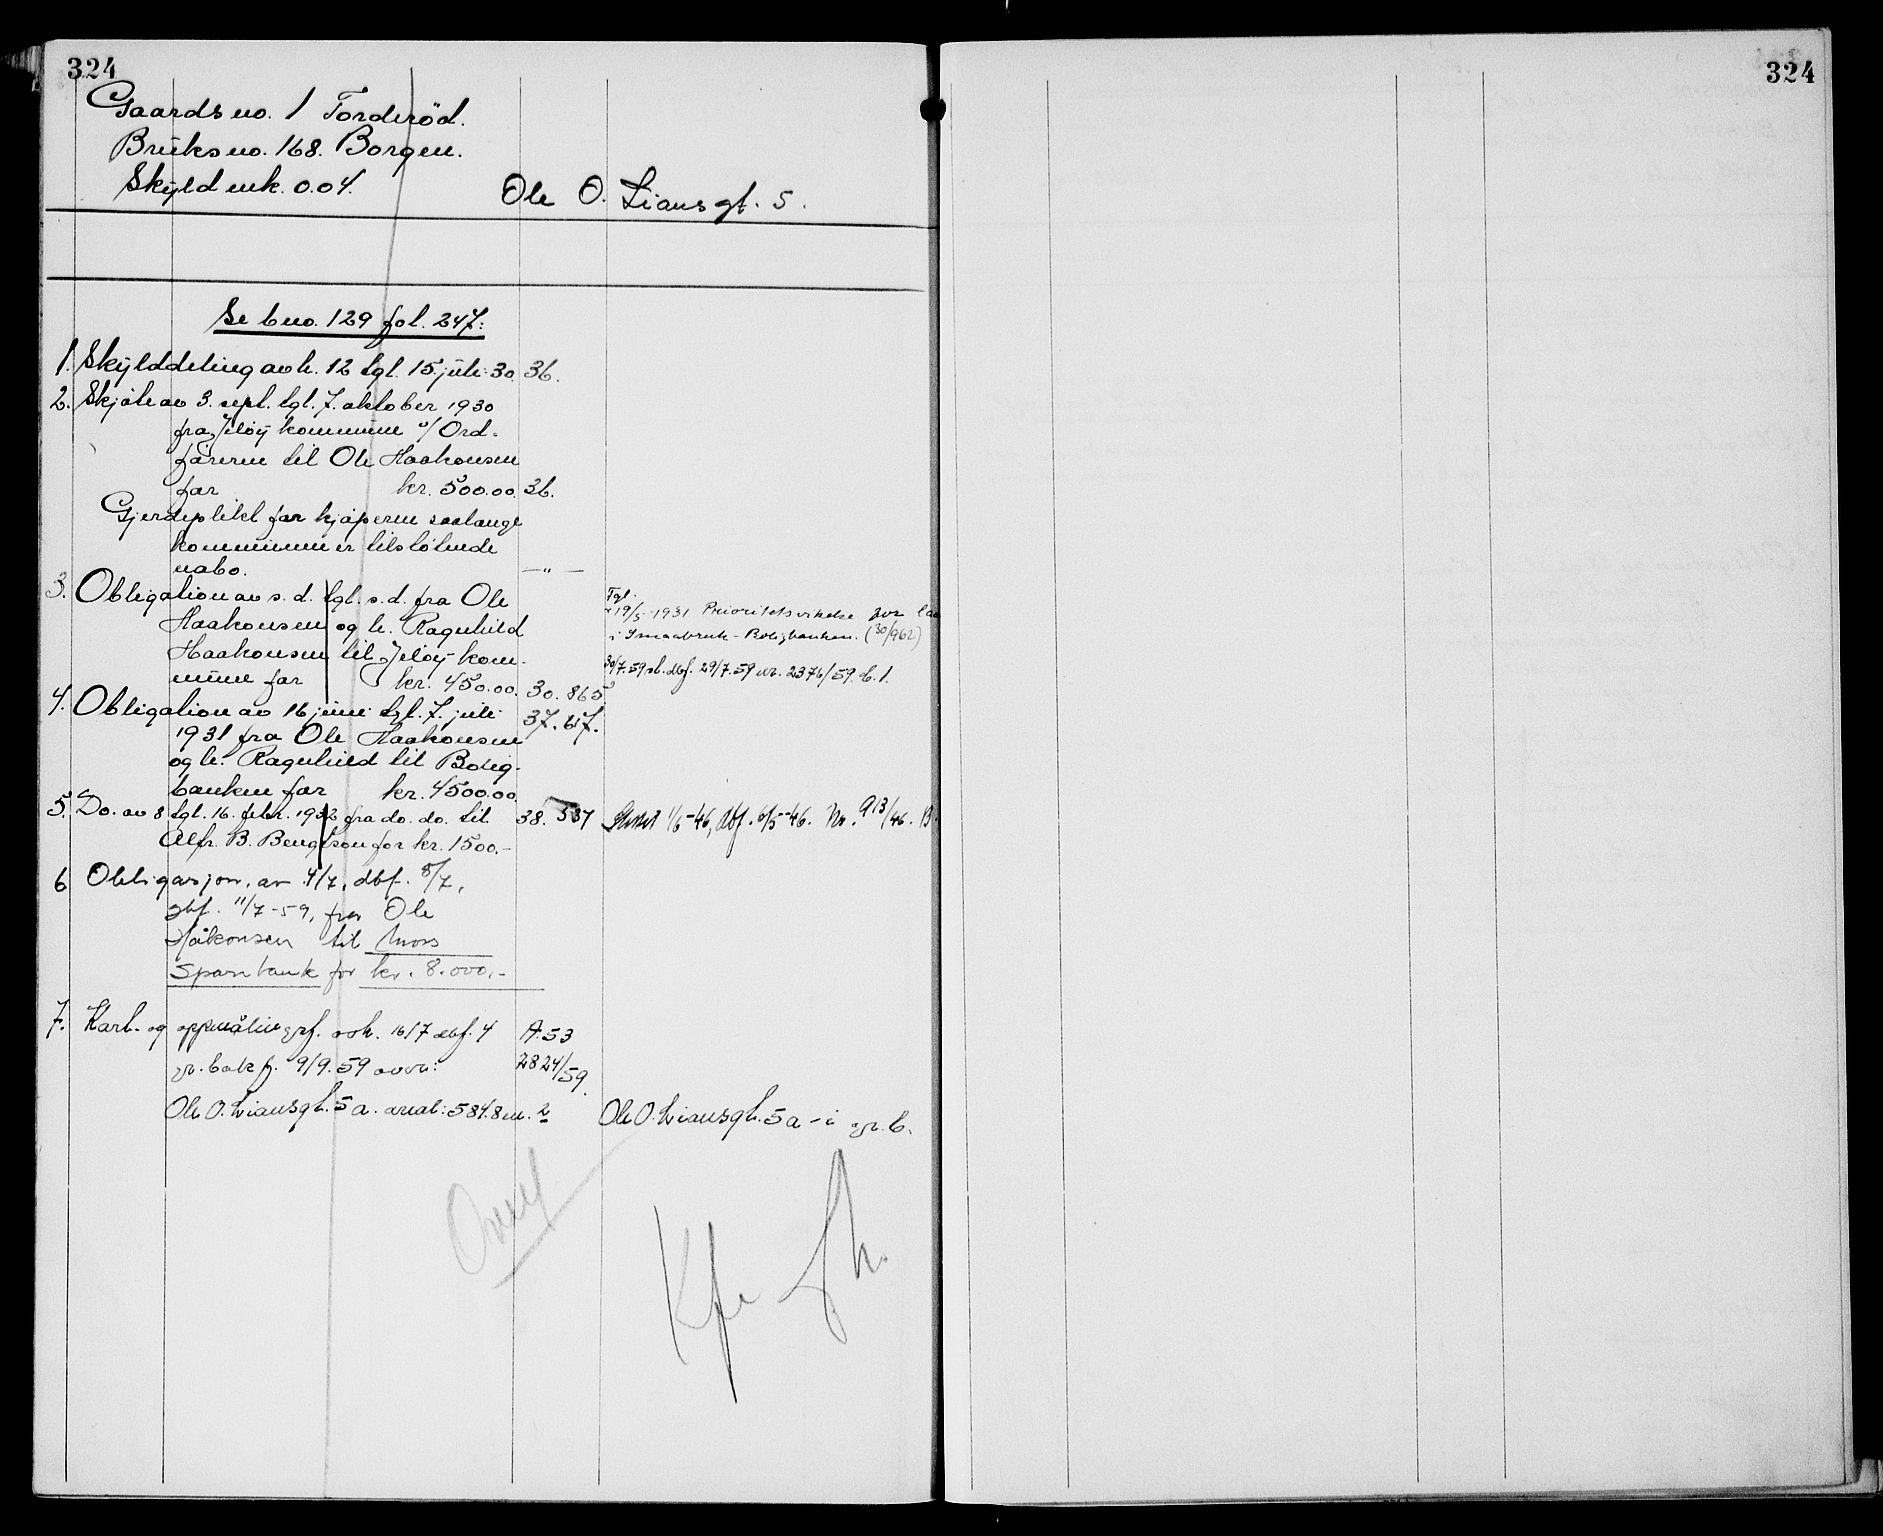 324
Gaards no. 1 Torderød.
Bruks no. 168. Borgen.
Skyld mk. 0.04.
Ole O. Liansgt. 5.
Se bno. 129 fol. 247:
1. Skylddeling avh. 12 tgl. 15. juli 30 36.
2. Skjøte av 3. sept. tgl. 7. oktober 1930
fra Jeløy kommune v/ Ord-
føreren til Ole Haakonsen
for kr. 500.00. 36.
Gjerdeplikt for kjøperen saalange
kommunen er tilstøtende
nabo. — " —
3. Obligation av s. d. tgl. s. d. fra Ole
Haakonsen og h. Ragnhild
Haakonsen til Jeløy kom-
mune for kr. 450.00. 30. 865
Tgl.
19/5-1931 Prioritetsvikelse for laa
i Smaabruk-Boligbanken. (30/962)
30/7.59 sl. dbf. 29/7.59 nr. 2376/59. b. 1.
4. Obligation av 16 juni tgl. 7. juli 37. 67.
1931 fra Ole Haakonsen
og h. Ragnhild til Bolig-
banken for kr. 4500.00.
5. Do. av 8 tgl. 16. febr. 1932 fra do. do. til 38. 537
Alfr. B. Bengtson for kr. 1500.-
Slettet 1/5-46, dbf. 6/5-46. Nr. 913/46. B.
6 Obligasjon, av 4/7, dbf. 8/7,
gbf. 11/7-59, fra Ole
Håkonsen til Moss
Sparebank for kr. 8.000,-
7. Kart- og oppmålingsf. avh. 16/7 dbf. 4 A.53
gr. bok f. 9/9.59 over: 2824/59.
Ole O. Liansgt. 5 a. areal: 584.8 m. 2
Ole O. Liansgt. 5 a - i gr. b.
324